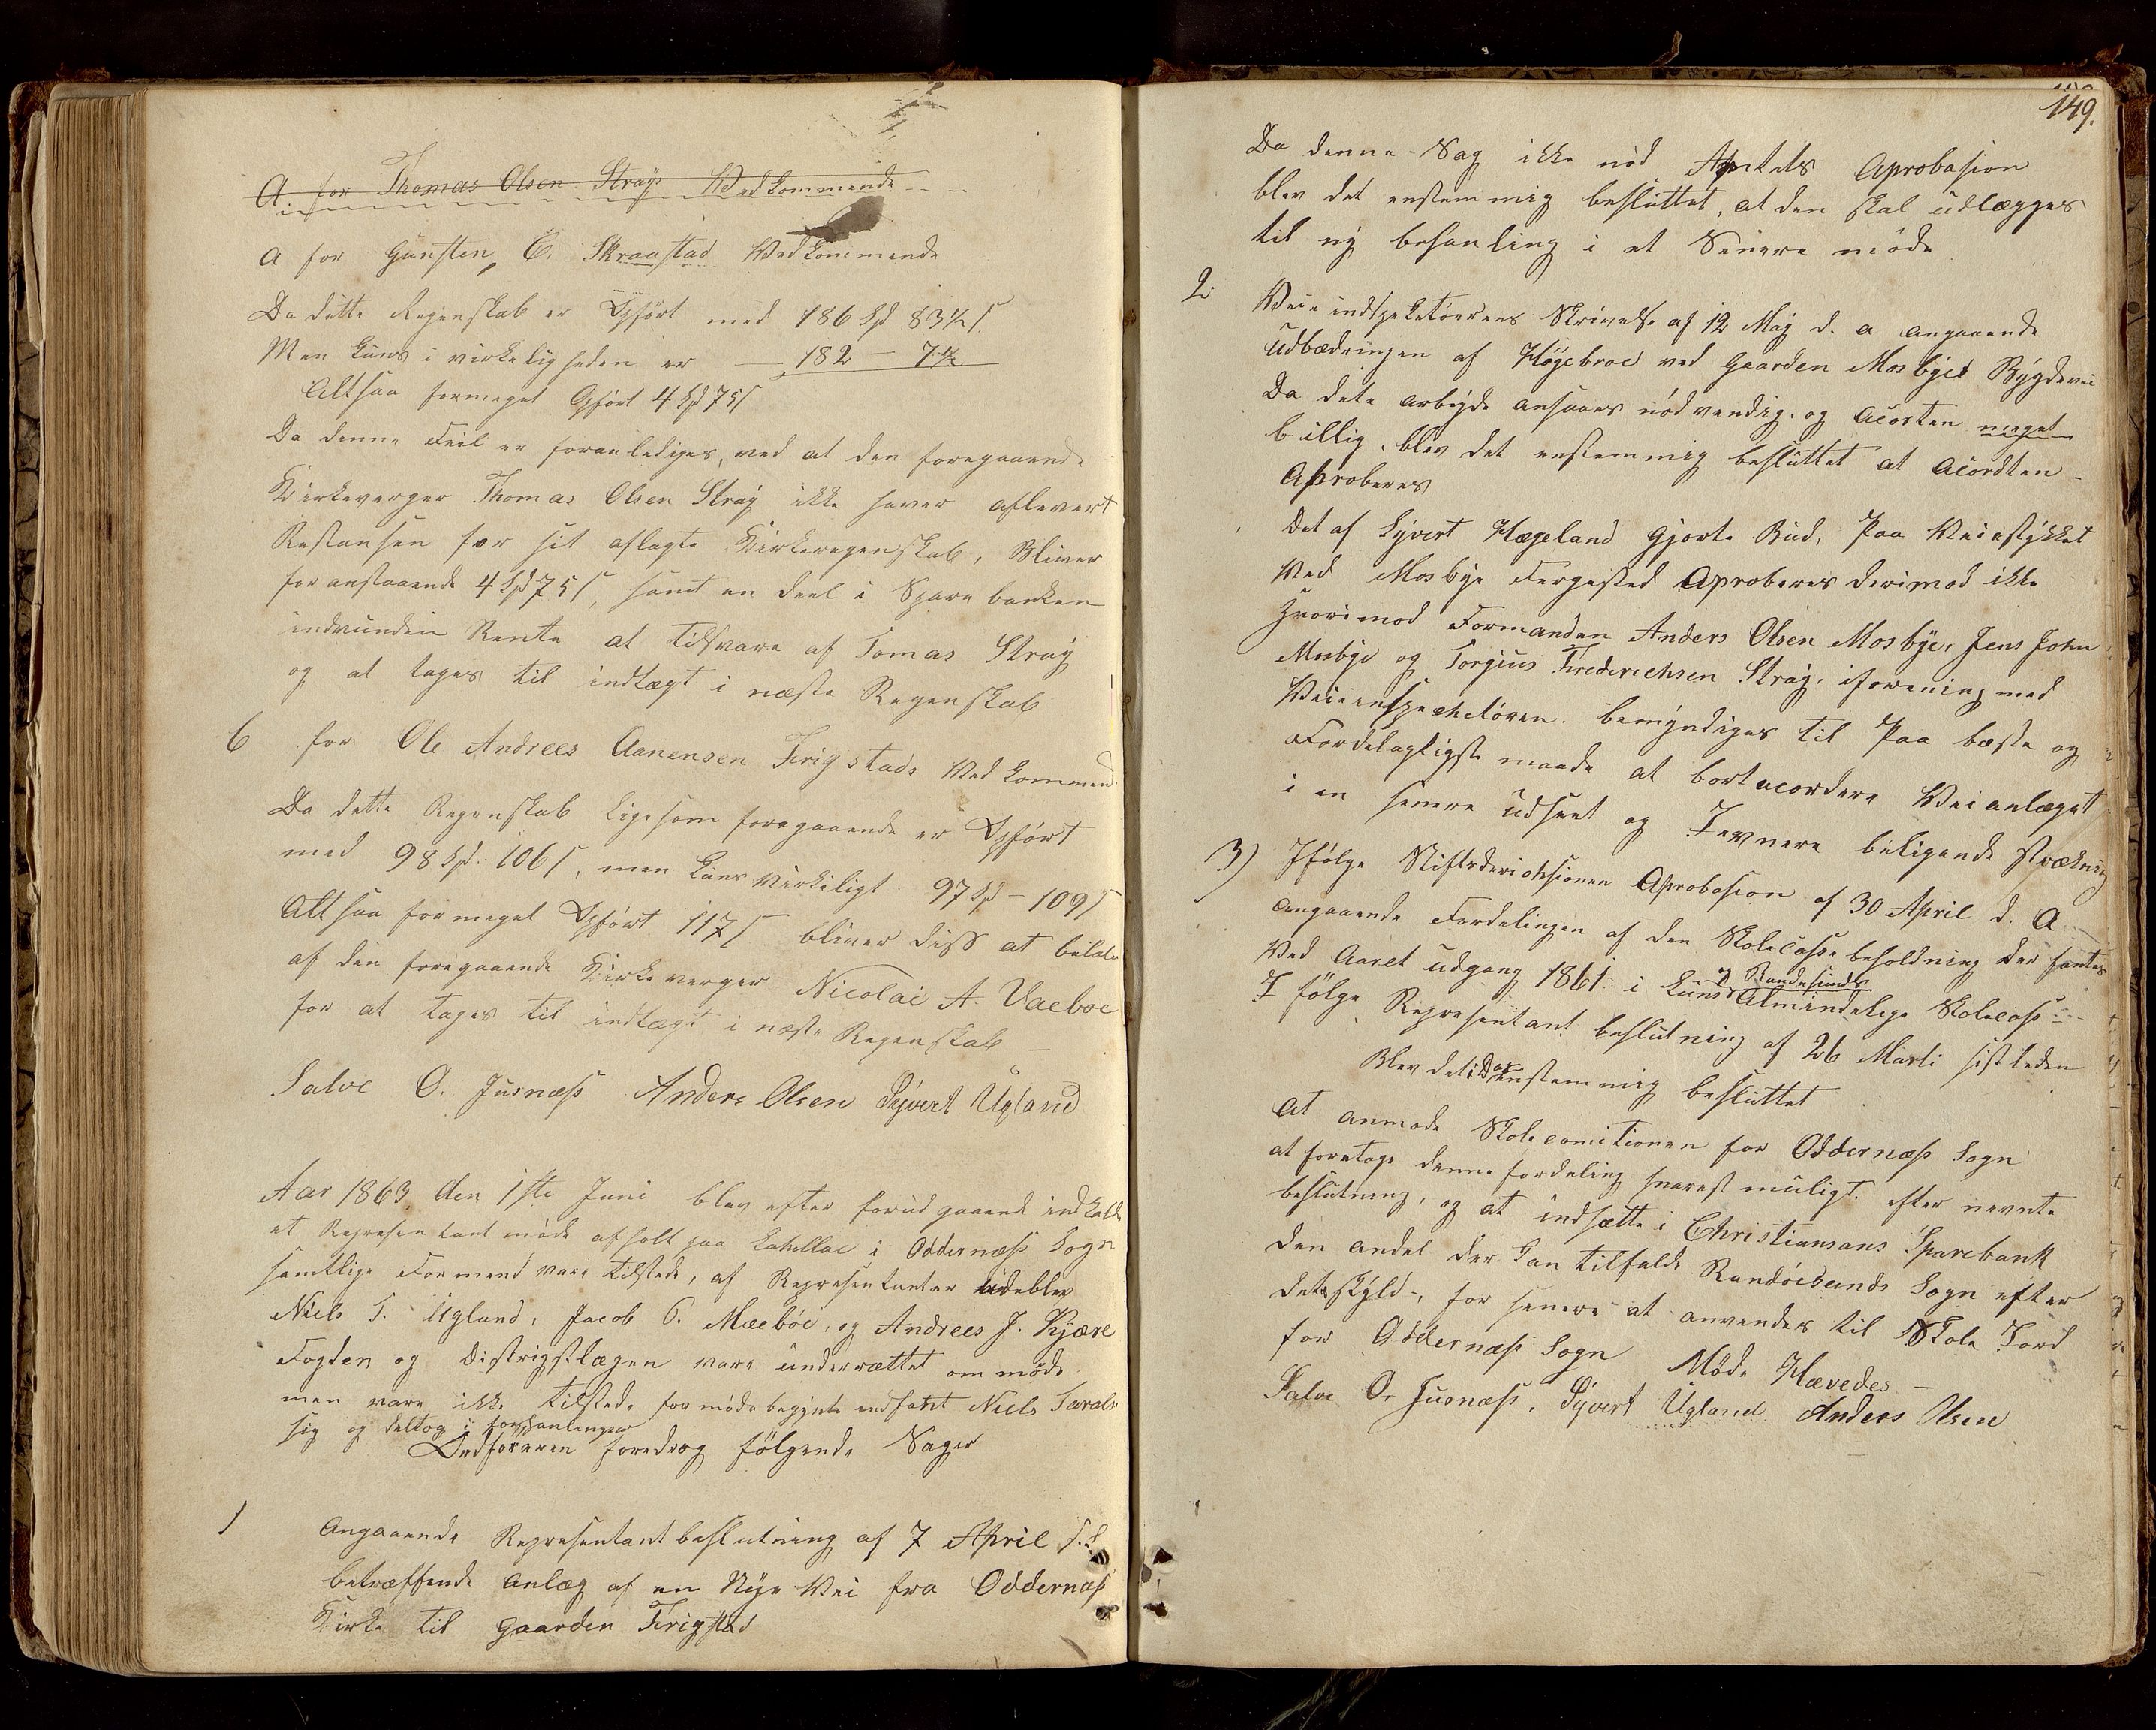 A. for Thomas Olsen Strays Vedkommende
A for Gunsten C. Skraastad Vedkommende
Da dette Regenskab er Opfört med 186 Spd 83½ s.
Men kuns i virkeligheden er 182 — 7½
Altsaa formeget Opfört 4 Spd 75 s
Da denne Feil er foranlediges, ved at den foregaaende
Kirkeverger Thomas Olsen Stray ikke haver aflevert
Restansen for sit aflagte Kirkeregenskab, Bliver
foranstaaende 4 Spd 75 s, samt en deel i Sparebanken
indvunden Rente at tilsvare af Tomas Stray
og at tages til indtægt i næste Regenskab
6 for Ole Andrees Aanensen Frigstads Vedkommend
Da dette Regenskab ligesom foregaaende er Opfört
med 98 Spd: 106 s, men kuns virkeligt 97 Spd - 109 s
Altsaa formeget Opfört 117 s bliver diss at betale
af den foregaaende Kirkeverger Nicolai A. Vaeboe
for at tages til indtægt i næste Regenskab —
Salve O. Jusnæss Anders Olsen Syvert Ugland
Aar 1863 den 1ste Juni blev efter forudgaaende indkald
et Representantmöde afholt paa Lahellae i Oddernæss Sogn
samtlige Formend vare tilstede, af Representanter udeblev
Niels T. Ugland, Jacob O. Mæeböe, og Andrees J. Kjære
Fogden og Distrigtslægen vare underrættet om möde
men vare ikke tilstede för möde begynte indfant Niels
sig og deltog i forhanlingen
Ordföreren foredrog fölgende Sager
1 Angaaende Representantbeslutning af 7 April s.l
betræffende Anlæg af en Nye Vei fra Oddernæss
Kirke til Gaarden Frigstad
149.
Da denne Sag ikke nöd Amtets Aprobasion
blev det enstemmig besluttet, at den skal udlægges
til ny behanling i et Senere möde
2. Veieindspektöerens Skrivelse af 12 Maj d. a angaaende
Udbædringen af Höyebroe ved Gaarden Mosbyes Bygdevei
Da dete arbeyde ansaaes nödvendig. og Acorten meget
billig, blev det enstemmig besluttet at Acordten
Aproberes
Det af Syvert Hægeland Gjorte Bud, Paa Veiestykket
Ved Mosbye Fergested Aproberes derimod ikke
hvorimod Formanden Anders Olsen Mosbye, Jens John
Mosbye og Torgius Frederichsen Stray, iforening med
Veieinspecktören bemyndiges til Paa bæste og
Fordelagtigste maade at bortacordere Veianlæget
i en senere udseet og Jevnere beligende strækning
3) Ifölge Stiftsderichsionen Aprobasion af 30 April d. A
angaaende Fordelingen af den Skolecasse beholdning der fantes
Ved Aaret udgang 1861 i Almindelige Skolecass
og Randesunds
I fölge Representant beslutning af 26 Marti sistleden
Blev det enstemmig besluttet
at anmode Skolecomitionen for Oddernæss Sogn
at foretage denne fordeling snarest muligt. efter nevnte
beslutning, og at indsætte i Christiansans Sparebank
den andel der kan tilfalde Randöesunds Sogn efter
dets Skyld, for senere at anvendes til Skole Jord
for Oddernæss Sogn Möde Hævedes —
Salve O. Jusnæss, Syvert Ugland Anders Olsen